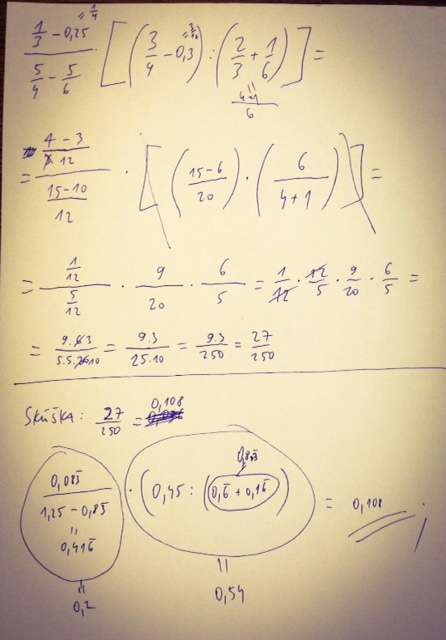 (1/3 - 0,25 = 1/4) / (5/4 - 5/6) · [(3/4 - 0,3 = 3/10) : (2/3 + 1/6)] =
= (4+1)/6
= ((4 - 3)/12) / ((15-10)/12) · [((15-6)/20) · (6/(4+1))] =
= (1/12)/(5/12) · 9/20 · 6/5 = 1/12 · 12/5 · 9/20 · 6/5 =
= 9.3/5.5.10 = 9.3/25.10 = 9.3/250 = 27/250
SKÚŠKA: 27/250 = 0,108
0,8̅3
0,083̅ / (1,25 - 0,83̅) · (0,45 : (0,6̅ + 0,16̅)) = 0,108
= 0,416̅
= 0,2
= 0,54